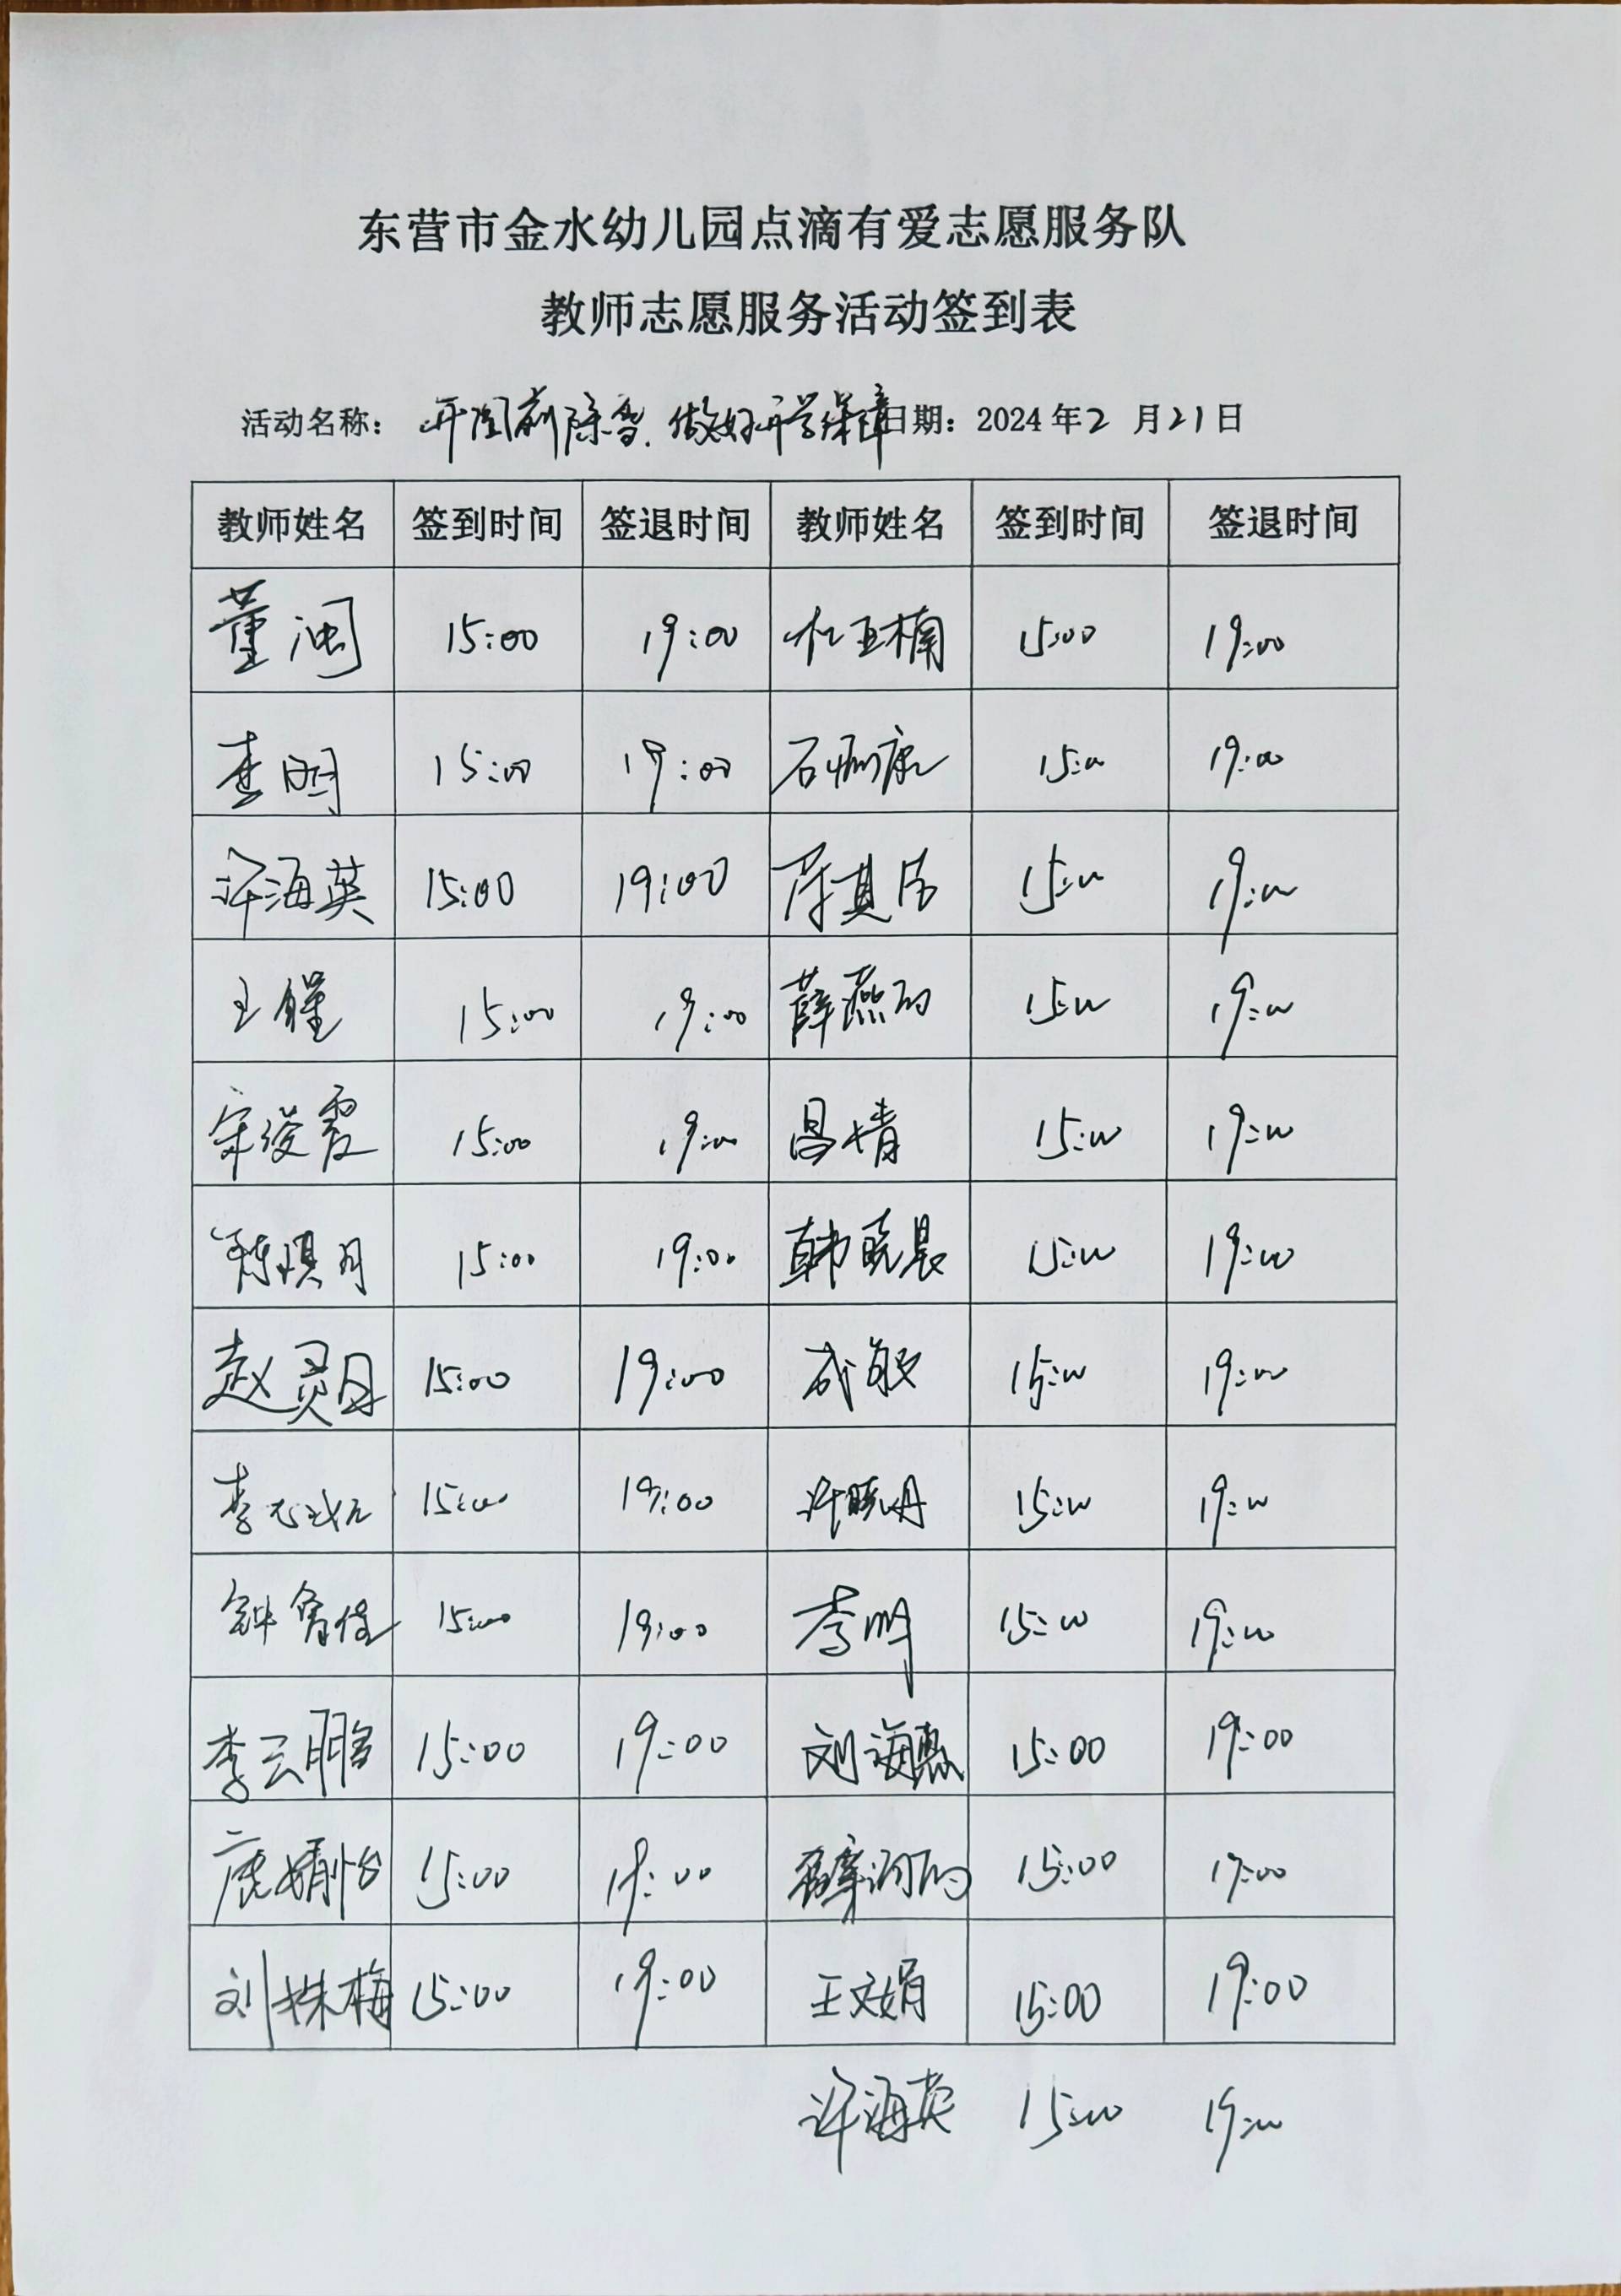 东营市金水幼儿园点滴有爱志愿服务队
教师志愿服务活动签到表
活动名称： 开园前除雪、做好开学保障 日期：2024年2月21日
教师姓名 签到时间 签退时间 教师姓名 签到时间 签退时间
董闽 15:00 19:00 杜玉楠 15:00 19:00
李明 15:00 19:00 石 康 15:00 19:00
许海英 15:00 19:00 15:00 19:00
王 15:00 19:00 薛燕 15:00 19:00
宋俊霞 15:00 19:00 吕婧 15:00 19:00
陈琪月 15:00 19:00 韩晓晨 15:00 19:00
赵灵丹 15:00 19:00 成敏 15:00 19:00
李 15:00 19:00 许晓丹 15:00 19:00
钟 佳 15:00 19:00 李明 15:00 19:00
李云鹏 15:00 19:00 刘海燕 15:00 19:00
鹿婧怡 15:00 19:00 薛 15:00 19:00
刘姝梅 15:00 19:00 王文娟 15:00 19:00
许海英 15:00 19:00